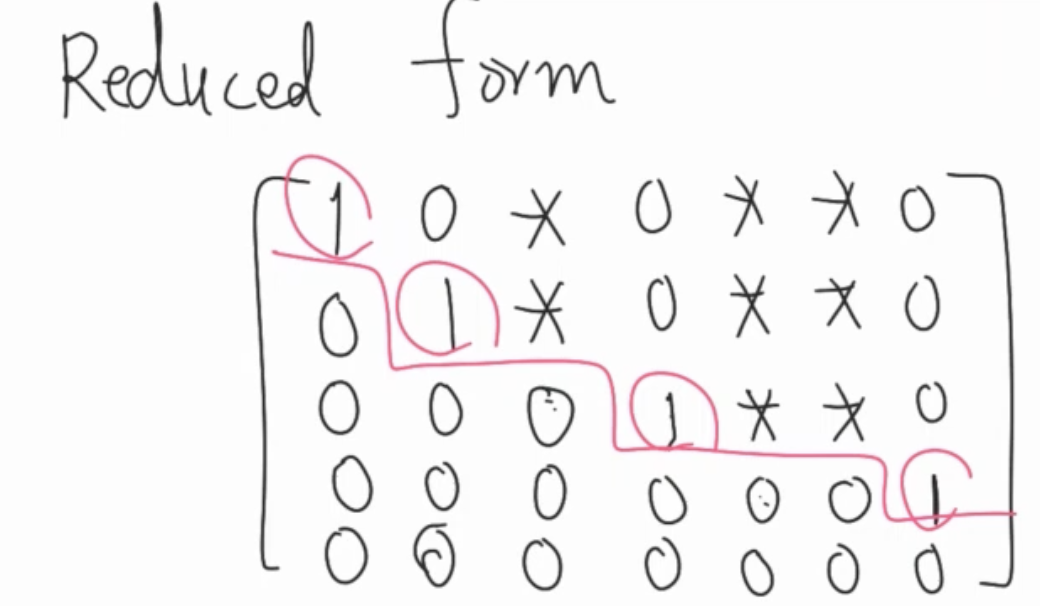 Reduced form
1 0 * 0 * * 0
0 1 * 0 * * 0
0 0 0 1 * * 0
0 0 0 0 0 0 1
0 0 0 0 0 0 0